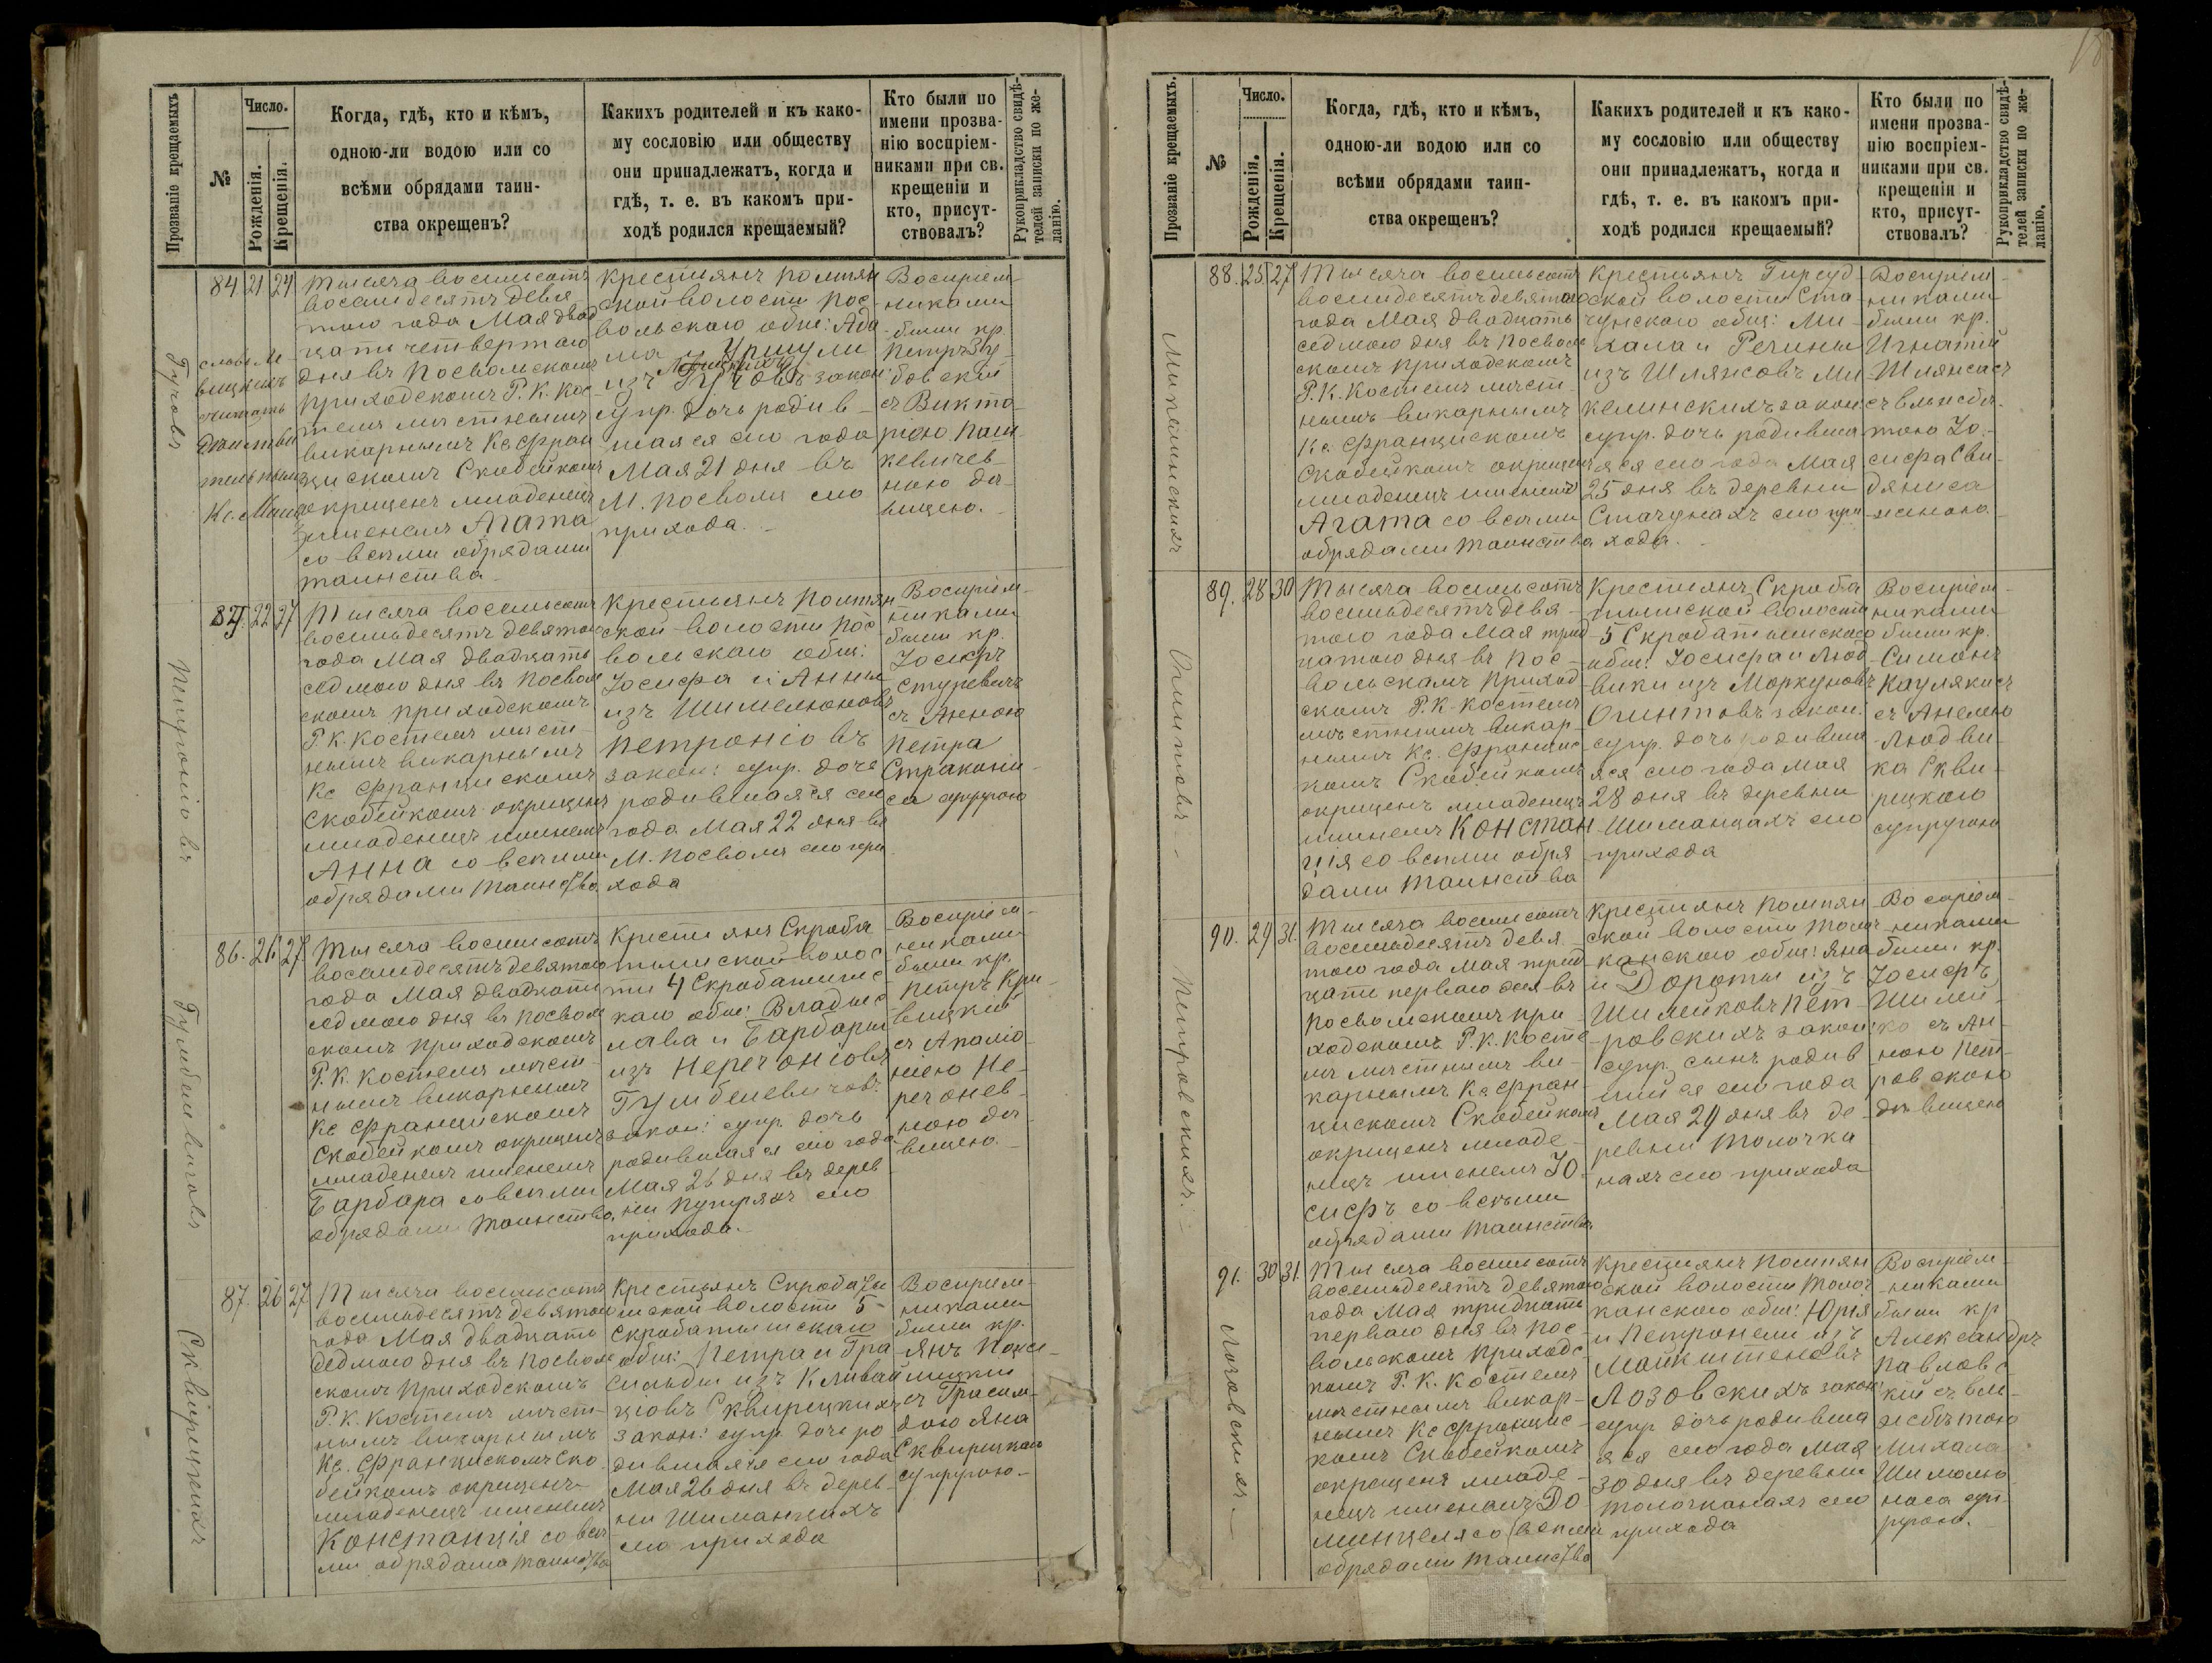 18
Прозваніе крещаемыхъ
№
Число.
Рожденія.
Крещенія.
Когда, гдѣ, кто и кѣмъ,
одною-ли водою или со
всѣми обрядами таин-
ства окрещенъ?
Какихъ родителей и къ како-
му сословію или обществу
они принадлежатъ, когда и
гдѣ, т. е. въ какомъ при-
ходѣ родился крещаемый?
Кто были по
имени прозва-
нію воспріем-
никами при св.
крещеніи и
кто, присут-
ствовалъ?
Рукоприкладство свидѣ-
телей записки по же-
ланію.
Гучовъ
84 21 24
Тысяча восемьсотъ
восемдесятъ девя
таго года Мая двад
цати четвертаго
дня въ Посвольскомъ
приходскомъ Р. К. Кос
телѣ мѣстнымъ
викарнымъ Кс Фран
цискомъ Скобейкомъ
окрещенъ младенецъ
именемъ Агата
со всѣми обрядами
таинства
Крестьянъ Помпян
ской волости Пос
вольскаго общ: Ада
ма и Уршули
изъ Гучовъ закон:
супр. дочь родив
шаяся сего года
Мая 21 дня въ
М. Посволя сего
прихода.
Воспріем
никами
были кр.
Петръ Зу
бовскій
съ Викто
ріею Паш
кевичев
ною дѣ
вицею.
Петроніовъ
85 22 27
Тысяча восемьсотъ
восемьдесятъ девятаго
года Мая двадцать
седмого дня въ Посволь
скомъ приходскомъ
Р. К. Костелѣ мѣст
нымъ викарнымъ
Кс Францискомъ
Скобейкомъ окрещенъ
младенецъ именемъ
Анна со всѣми
обрядами таинства
Крестьянъ Помпян
ской волости Пос
вольскаго общ:
Іосифа и Анны
изъ Шимелюновъ
Петроніовъ
закон: супр. дочь
родившаяся сего
года Мая 22 дня въ
М. Посволя сего при
хода
Воспріем-
никами
были кр.
Іосифъ
Стуревичъ
съ Анною
Петра
Стракони
са супругою
Гумбелевичовъ
86. 26 27
Тысяча восемьсотъ
восемдесятъ девятаго
года Мая двадцати
седмого дня въ Посволь
скомъ приходскомъ
Р. К. Костелѣ мѣст
нымъ викарнымъ
Кс Францискомъ
Скобейкомъ окрещенъ
младенецъ именемъ
Барбара со всѣми
обрядами таинства
Крестьянъ Скроба
тишской волос
ти 4 Скробатишс
каго общ: Владис
лава и Барбары
изъ Неречоніовъ
Гумбелевичовъ
закон: супр. дочь
родившаяся сего года
Мая 26 дня въ дерев
ни Пумпряхъ сего
прихода.
Воспріем-
никами
были кр.
Петръ Кри
вицкій
съ Аполіо
ніею Не-
речонев-
ною дѣ
вицею.
Сквирецкихъ
87. 26 27
Тысяча восемьсотъ
восемьдесятъ девятаго
года Мая двадцать
седмого дня въ Посволь
скомъ приходскомъ
Р. К. Костелѣ мѣст-
нымъ викарнымъ
Кс. Францискомъ Ско
бейкомъ окрещенъ
младенецъ именемъ
Констанція со всѣ
ми обрядами таинства
Крестьянъ Скробаты
шской волости 5
Скробатышскаго
общ: Петра и Гра
сильды изъ Кливай
цовъ Сквирецкихъ
закон: супр. дочь ро
дившаяся сего года
Мая 26 дня въ дерев
ни Шиманцихъ
сего прихода
Воспріем-
никами
были кр.
Янъ
съ Грасил-
дою Яна
Сквирецкаго
супругою.
Прозваніе крещаемыхъ.
№
Число.
Рожденія.
Крещенія.
Когда, гдѣ, кто и кѣмъ,
одною-ли водою или со
всѣми обрядами таин-
ства окрещенъ?
Какихъ родителей и къ како-
му сословію или обществу
они принадлежатъ, когда и
гдѣ, т. е. въ какомъ при-
ходѣ родился крещаемый?
Кто были по
имени прозва-
нію воспріем-
никами при св.
крещеніи и
кто, присут-
ствовалъ?
Рукоприкладство свидѣ-
телей записки по же-
ланію.
Микелинскихъ
88. 25. 27
Тысяча восемьсотъ
восемьдесятъ девятаго
года Мая двадцать
седмого дня въ Посволь
скомъ приходскомъ
Р. К. Костелѣ мѣст
нымъ викарнымъ
Кс. Францискомъ
Скобейкомъ окрещенъ
младенецъ именемъ
Агата со всѣми
обрядами таинства
Крестьянъ Гирсуд
ской волости Ста
чунскаго общ: Ми
хала и Регины
изъ Шлянсовъ Ми
келинскихъ закон:
супр. дочь родивша
яся сего года Мая
25 дня въ деревни
Стачунахъ сего при
хода.
Воспріем-
никами
были кр.
Игнатій
Шлянсасъ
съ Ельжбѣ
тою Іо-
сифа Сви
дяниса
женою
Огинтовъ
89. 28 30
Тысяча восемьсотъ
восемьдесятъ девя
таго года Мая трид
цатаго дня въ Пос
вольскомъ приход
скомъ Р. К. Костелѣ
мѣстнымъ викар
нымъ Кс. Францис
комъ Скобейкомъ
окрещенъ младенецъ
именемъ Констан
ція со всѣми обря
дами таинства
Крестьянъ Скроба
тишской волости
5 Скробатышскаго
общ: Іосифа и Люд
вики изъ Моркуновъ
Огинтовъ закон:
супр. дочь родивша
яся сего года мая
28 дня въ деревни
Шиманцахъ сего
прихода
Воспріем-
никами
были кр.
Симонъ
Каулякисъ
съ Анелею
Людви
ка Скви
рецкаго
супругою
Петровскихъ.
90. 29 31.
Тысяча восемьсотъ
восемьдесятъ девя
таго года Мая трид
цати перваго дня въ
Посвольскомъ при
ходскомъ Р. К. Косте
лѣ мѣстнымъ ви-
карнымъ Кс Фран-
цискомъ Скобейкомъ
окрещенъ младе
нецъ именемъ Іо
сифъ со всѣми
обрядами таинства
Крестьянъ Помпян
ской волости Толоч
канскаго общ: Яна
и Дороты изъ
Шимейковъ Пет
ровскихъ закон:
супр. сынъ родив
шійся сего года
Мая 29 дня въ де
ревни Толочка
нахъ сего прихода
Воспріем-
никами
были кр.
Іосифъ
Шимей
ко съ Ан
ною Пет
ровскою
дѣвицею
Лозовскихъ
91. 30 31.
Тысяча восемьсотъ
восемьдесятъ девятаго
года Мая тридцати
перваго дня въ Пос-
вольскомъ приходс
комъ Р. К. Костелѣ
мѣстнымъ викар-
нымъ Кс Францис
комъ Скобейкомъ
окрещенъ младе-
нецъ именемъ До
мицеля со всѣми
обрядами таинства
Крестьянъ Помпян
ской волости Толоч
канскаго общ: Юрія
и Петронели изъ
Майкштеновъ
Лозовскихъ закон:
супр дочь родивша
яся сего года Мая
30 дня въ деревни
Толочканахъ сего
прихода
Воспріем-
никами
были кр
Александръ
Павловс
кій съ Ель
жбѣтою
Михала
Шимолю
наса суп
ругою.